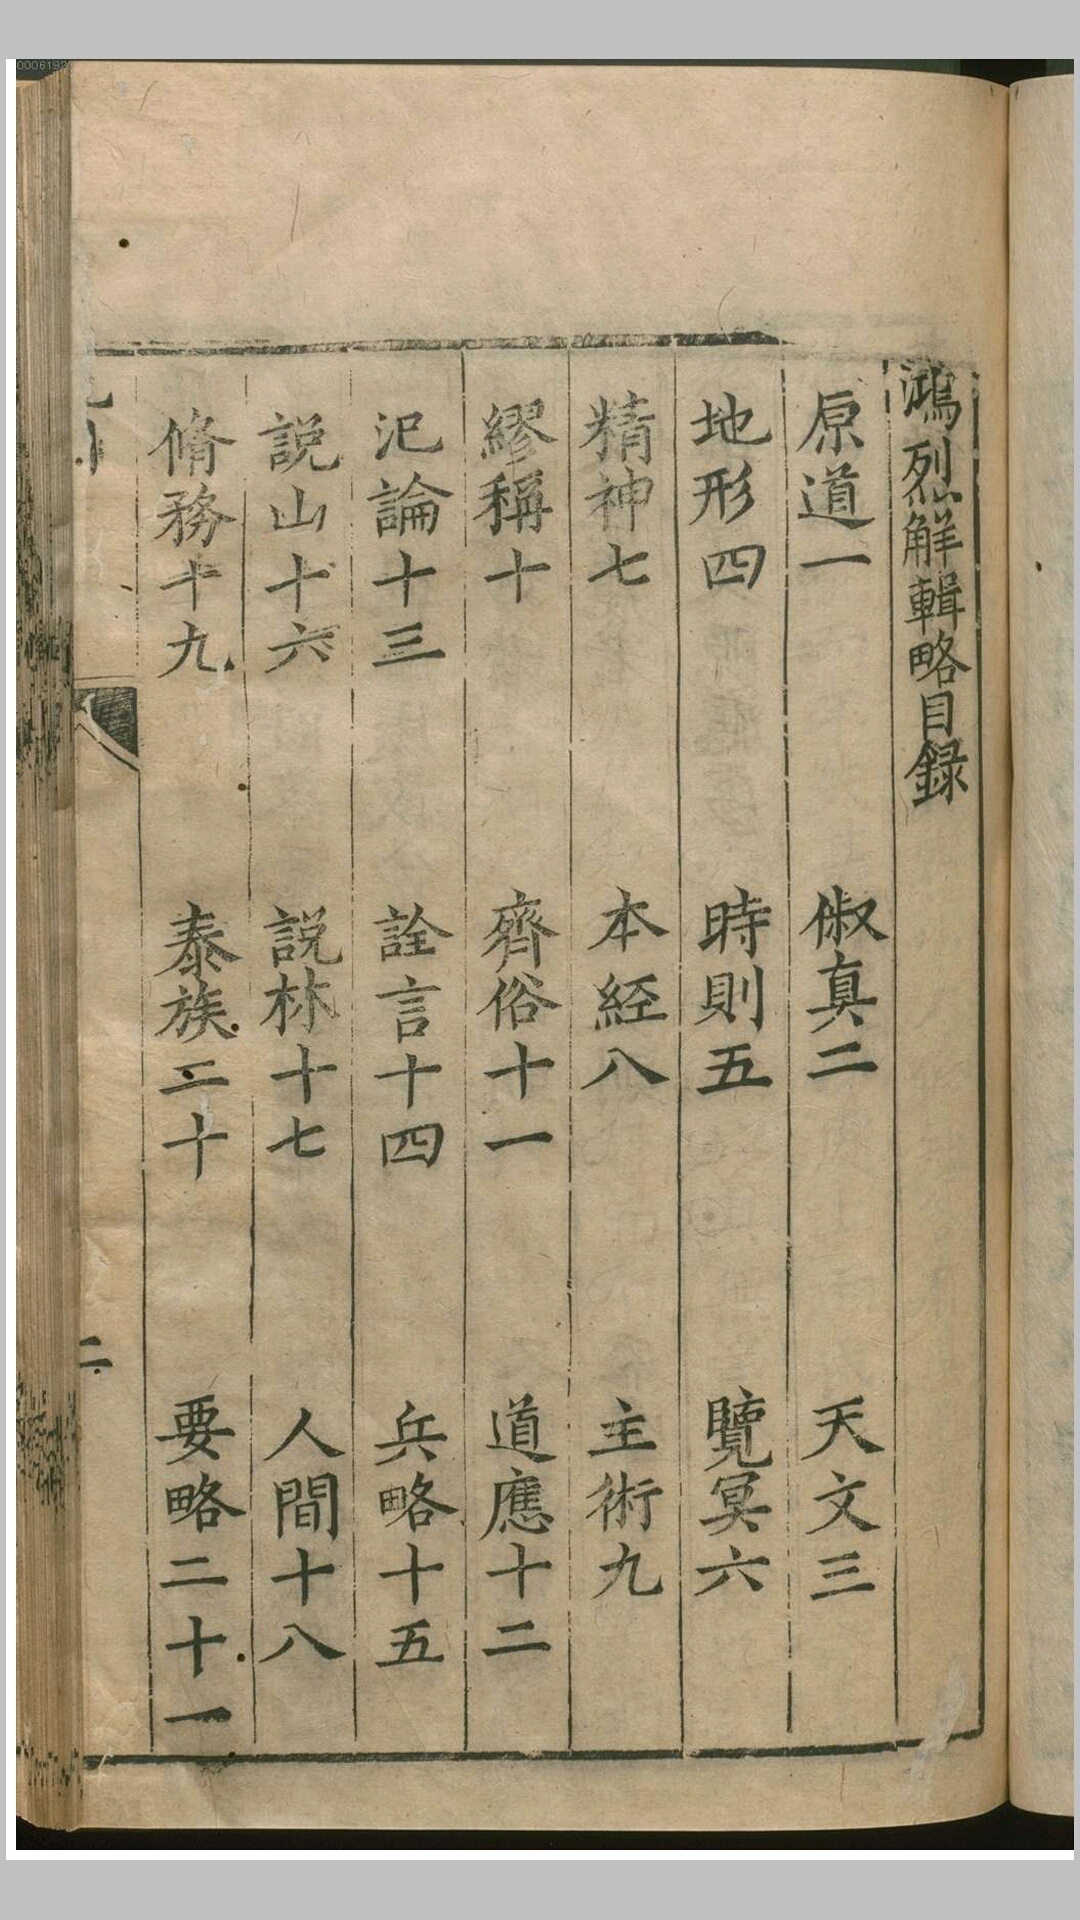 鴻烈觧輯略目録
原道一 俶真二 天文三
地形四 時則五 覽冥六
精神七 本經八 主術九
繆稱十 齊俗十一 道應十二
氾論十三 詮言十四 兵略十五
説山十六 説林十七 人間十八
脩務十九 泰族二十 要略二十一
二